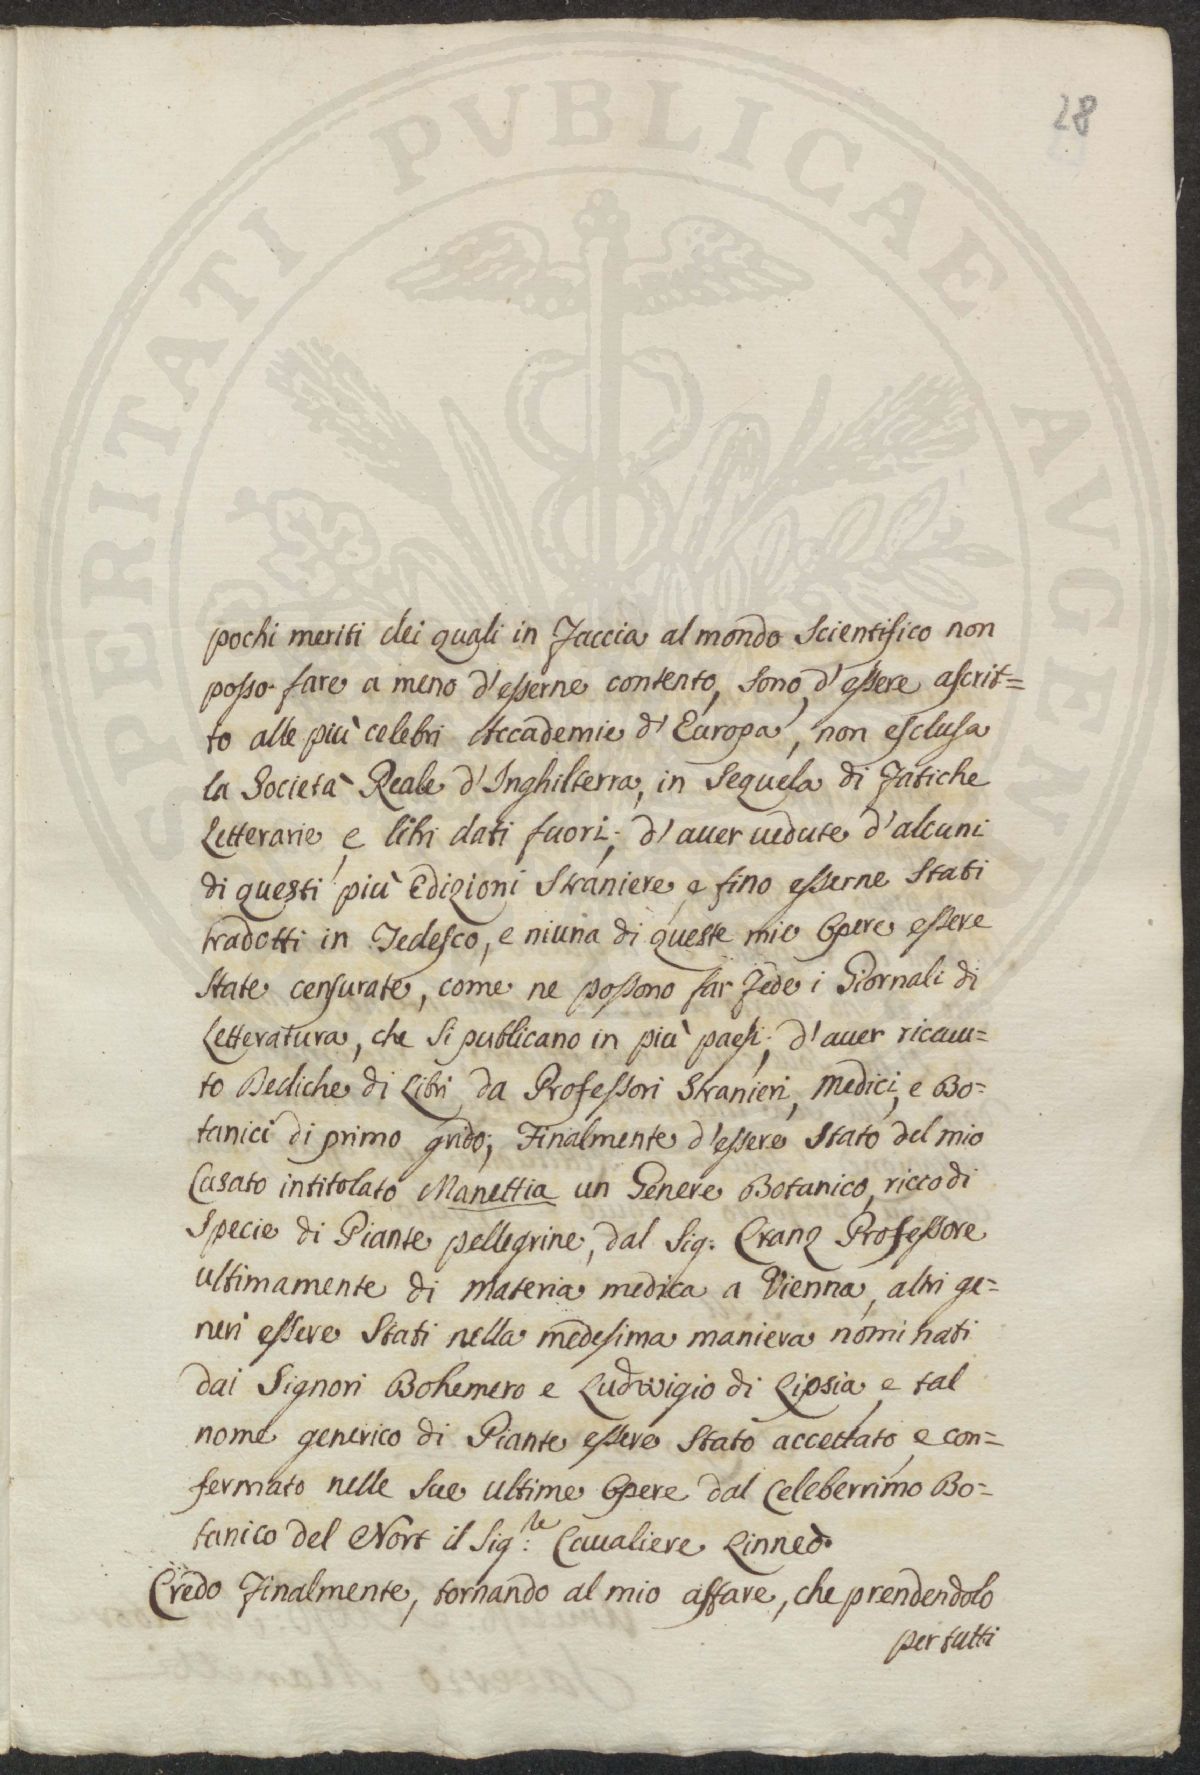 28
PROSPERITATI PVBLICAE AVGENDAE
pochi meriti dei quali in Faccia al mondo Scientifico non
posso fare a meno d'esserne contento, sono d'essere ascrit=
to alle più celebri Accademie d'Europa, non esclusa
la Società Reale d'Inghilterra, in Sequela di Fatiche
Letterarie, e libri dati fuori; d'auer uedute d'alcuni
di questi più Edizioni Straniere, e fino esserne Stati
tradotti in Tedesco, e niuna di queste mie Opere essere
State censurate, come ne possono far Fede i Giornali di
Letteratura, che si publicano in più paesi; d'auer riceuu=
to Dediche di Libri da Professori Stranieri, Medici, e Bo=
tanici di primo grido; Finalmente d'essere Stato del mio
Casato intitolato Manettia un Genere Botanico, ricco di
Specie di Piante pellegrine, dal Sig: Cranz Professore
ultimamente di materia medica a Vienna, altri ge=
neri essere Stati nella medesima maniera nominati
dai Signori Bohemero e Ludwigio di Lipsia, e tal
nome generico di Piante essere Stato accettato, e con=
fermato nelle Sue ultime Opere dal Celeberrimo Bo=
tanico del Nort il Sig:re Caualiere Linneo.
Credo Finalmente, tornando al mio affare, che prendendolo
per tutti